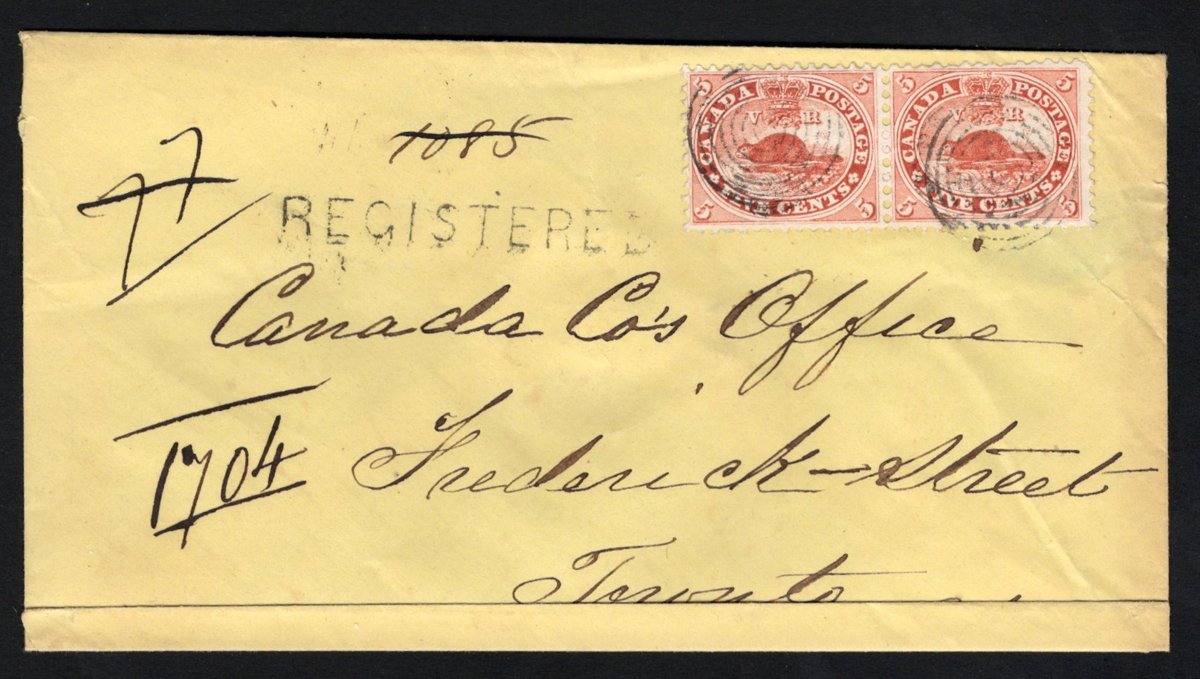 5 CANADA POSTAGE 5
V R
FIVE CENTS
5 5
5 CANADA POSTAGE 5
V R
FIVE CENTS
5 5
1085
REGISTERED
Canada Co's Office
1704
Frederick Street
Toronto